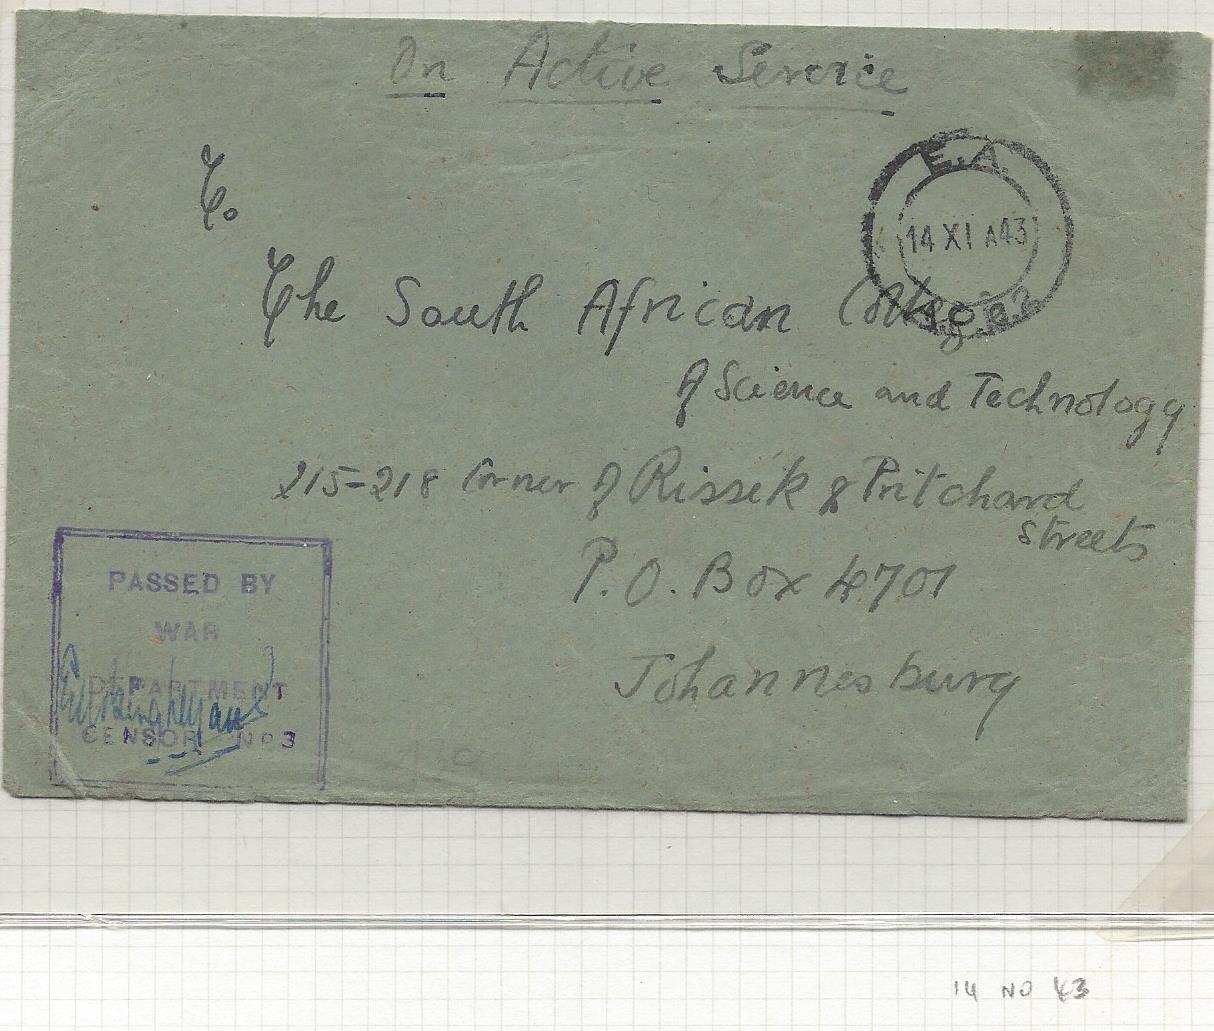 On Active Service
To
E.A.
14 XI A43
The South African College
of Science and Technology
215-218 Corner of Rissik & Pritchard
Streets
P.O. Box 4701
Johannesburg
PASSED BY
WAR
DEPARTMENT
CENSOR No 3
14 NO 43